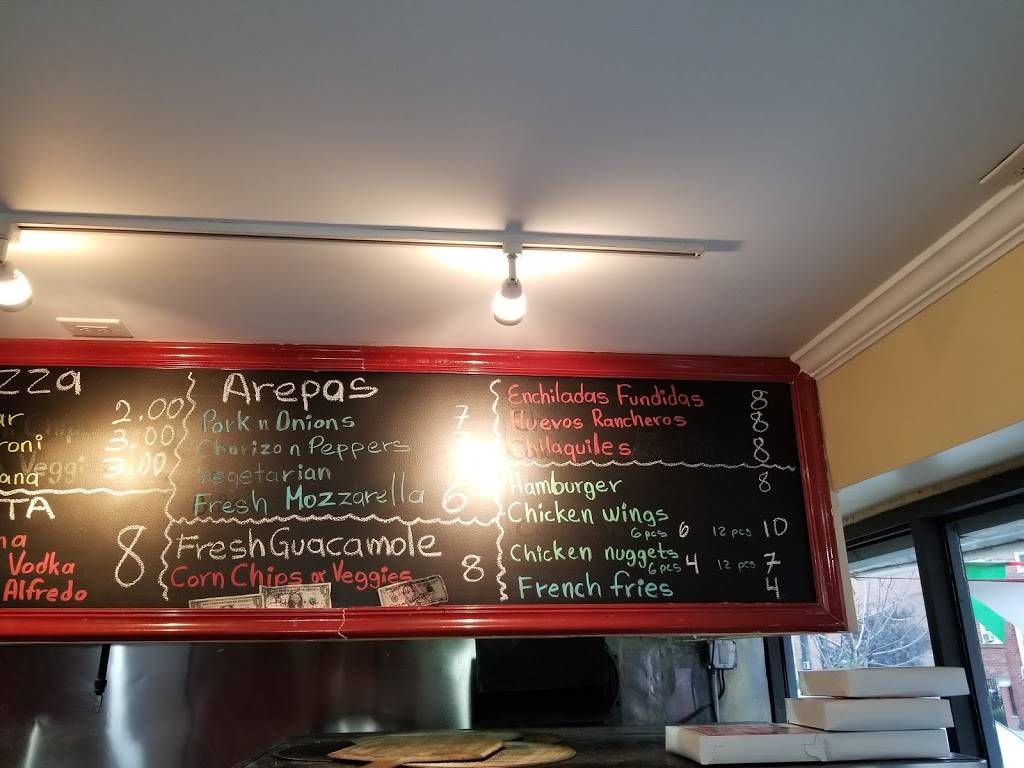 zza
ar 2.00
roni 3.00
ana 3.00
TA
na
Vodka 8
Alfredo
Arepas
Pork n Onions 7
Chorizo n Peppers
Vegetarian
Fresh Mozzarella 6
Fresh Guacamole
Corn Chips or Veggies 8
Enchiladas Fundidas 8
Huevos Rancheros 8
Chilaquiles 8
Hamburger 8
Chicken Wings
6 pcs 6 12 pcs 10
Chicken nuggets
6 pcs 4 12 pcs 7
French fries 4